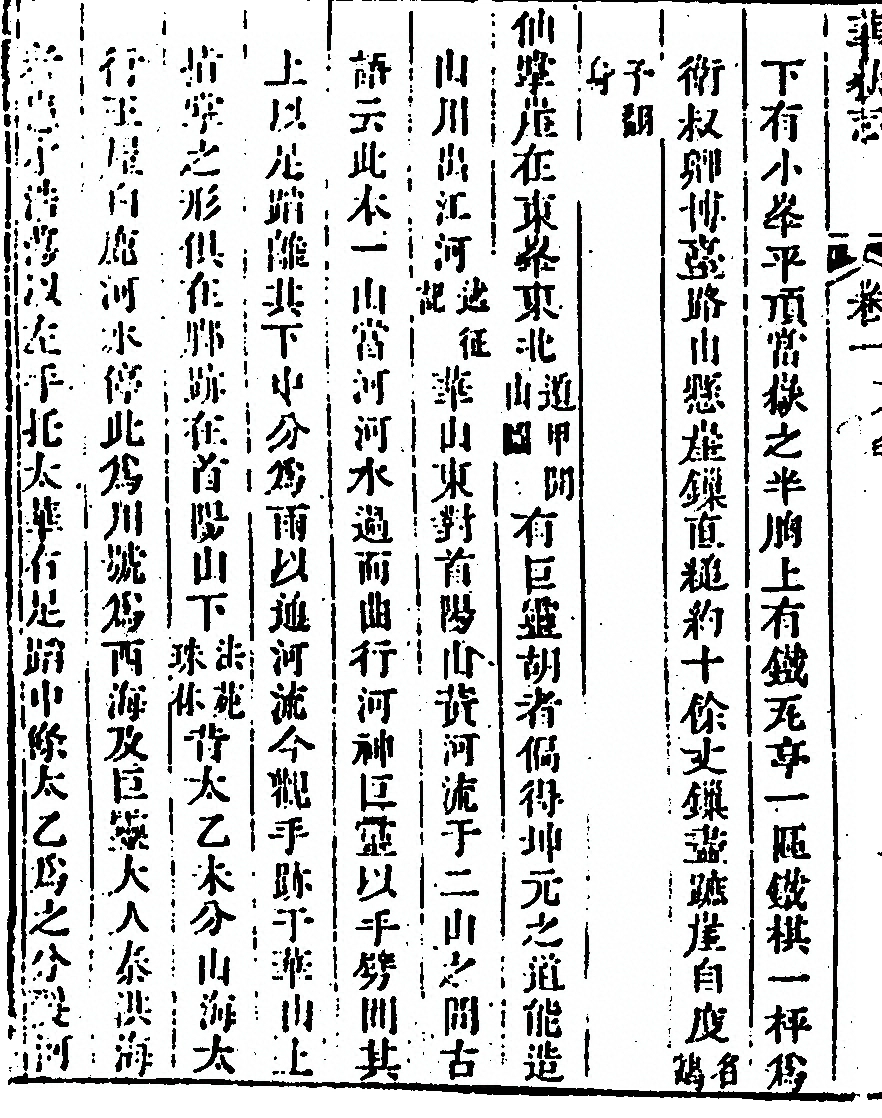 華嶽志 卷一
下有小峯平頂當嶽之半胸上有鐵瓦亭一區鐵棋一枰爲
衛叔卿博臺路由懸崖鏁直縋約十餘丈鏁盡蹠崖自度名鷂
子翻身
仙掌崖在東峯東北遁甲開山圖有巨靈胡者偏得坤元之道能造
山川出江河述征記華山東對首陽山黃河流于二山之間古
語云此本一山當河河水過而曲行河神巨靈以手劈開其
上以足蹈離其下中分爲兩以通河流今觀手跡于華山上
指掌之形俱在脚跡在首陽山下法苑珠林昔太乙未分山海太
行王屋白鹿河水停此爲川號爲西海及巨靈大人秦洪海
者患浩蕩以左手托太華右足蹈中條太乙爲之分裂河